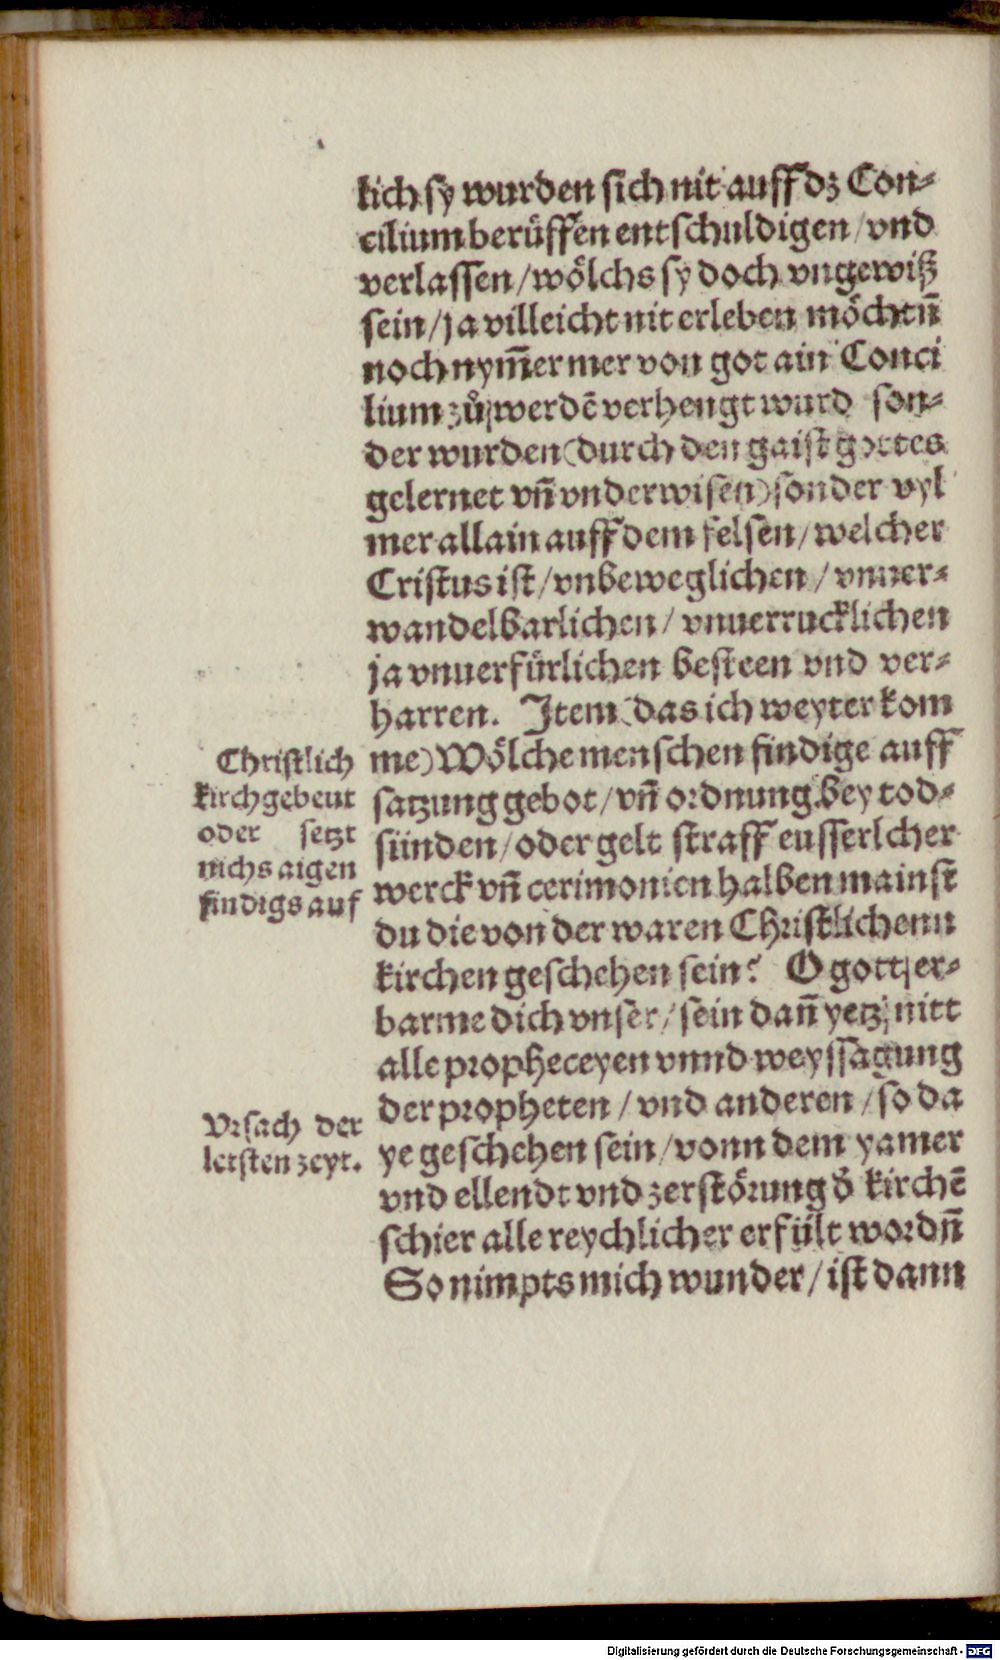 lich sy wurden sich nit auff dz Con⸗
cilium berůffen entschuldigen / vnd
verlassen / wölchs sy doch vngewiß
sein / ja villeicht nit erleben möchtñ
noch nym̄er mer von got ain Conci
lium zů werdē verhengt wurd son⸗
der wurden (durch den gaist gottes
gelernet vñ vnderwisen) sonder vyl
mer allain auff dem felsen / welcher
Cristus ist / vnbeweglichen / vnuer⸗
wandelbarlichen / vnuerrucklichen
ja vnuerfürlichen besteen vnd ver⸗
harren. Item (das ich weyter kom
me) Wölche menschen findige auff
satzung gebot / vñ ordnung bey tod⸗
sünden / oder gelt straff eusserlcher
werck vñ cerimonien halben mainst
du die von der waren Christlichenn
kirchen geschehen sein? O gott er⸗
barme dich vnser / sein dañ yetz nitt
alle propheceyen vnnd weyssagung
der propheten / vnd anderen / so da
ye geschehen sein / vonn dem yamer
vnd ellendt vnd zerstörung d̕ kirchē
schier alle reychlicher erfült wordñ
So nimpts mich wunder / ist dann
Christlich
kirch gebeut
oder setzt
nichs aigen
findigs auf
Vrsach der
letsten zeyt.
Digitalisierung gefördert durch die Deutsche Forschungsgemeinschaft - DFG